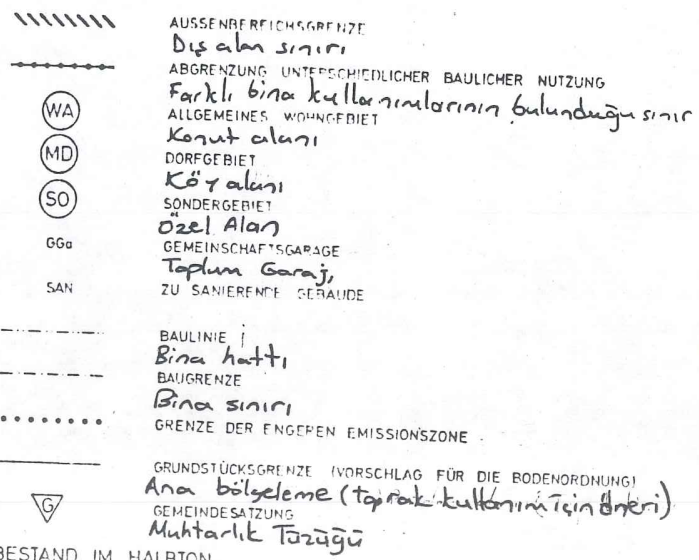 AUSSENBEREICHSGRENZE
Dış alan sınırı
ABGRENZUNG UNTERSCHIEDLICHER BAULICHER NUTZUNG
Farklı bina kullanımlarının bulunduğu sınır
WA ALLGEMEINES WOHNGEBIET
Konut alanı
MD DORFGEBIET
Köy alanı
SO SONDERGEBIET
Özel Alan
GGa GEMEINSCHAFTSGARAGE
Toplum Garajı
SAN ZU SANIERENDE GEBÄUDE
BAULINIE
Bina hattı
BAUGRENZE
Bina sınırı
GRENZE DER ENGEREN EMISSIONSZONE
GRUNDSTÜCKSGRENZE (VORSCHLAG FÜR DIE BODENORDNUNG)
Ana bölgeleme (toprak kullanım için öneri)
G GEMEINDESATZUNG
Muhtarlık Tüzüğü
BESTAND IM HALBTON